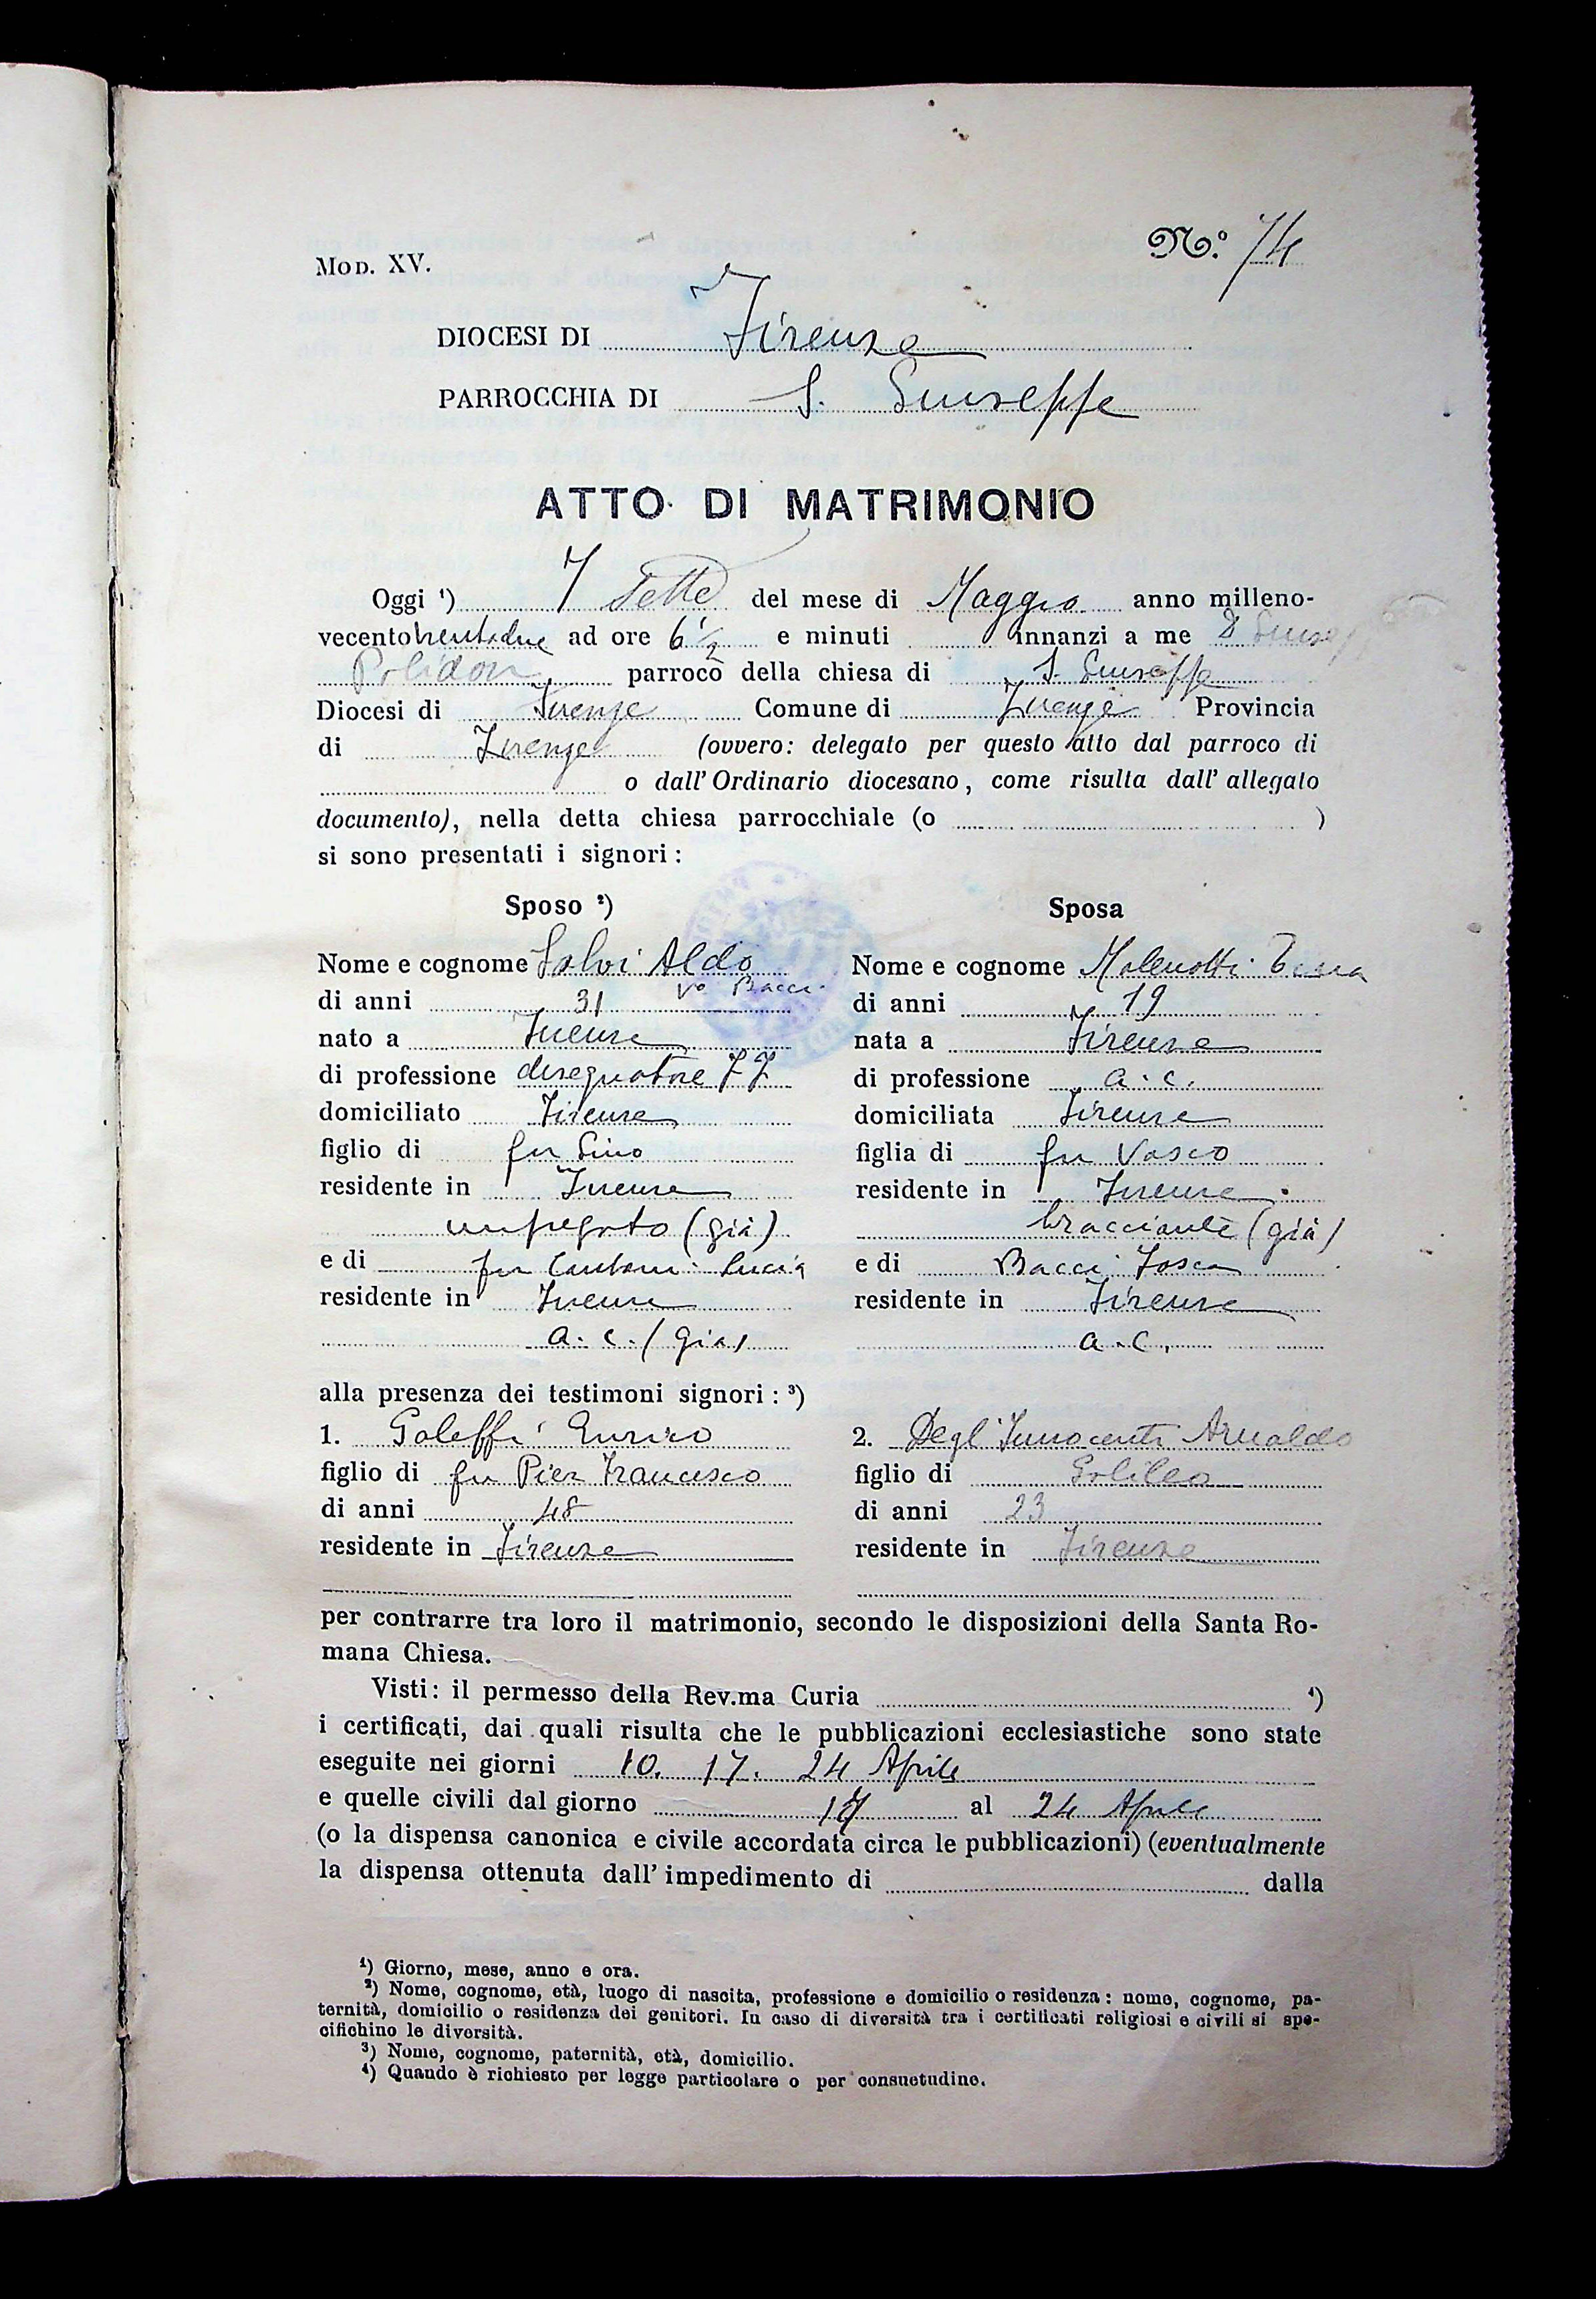 Mod. XV.
N.º 74
DIOCESI DI Firenze
PARROCCHIA DI S. Giuseppe
ATTO DI MATRIMONIO
Oggi ¹) 7 Sette del mese di Maggio anno milleno-
vecento trentadue ad ore 6 1/2 e minuti innanzi a me D Giuseppe
Polidori parroco della chiesa di S. Giuseppe
Diocesi di Firenze Comune di Firenze Provincia
di Firenze (ovvero: delegato per questo atto dal parroco di
o dall' Ordinario diocesano, come risulta dall' allegato
documento), nella detta chiesa parrocchiale (o )
si sono presentati i signori:
Sposo ²)
Nome e cognome Salvi Aldo
di anni 31 Vo Bacci
nato a Firenze
di professione disegnatore FF
domiciliato Firenze
figlio di fu Gino
residente in Firenze
impiegato (già)
e di fu Cantoni Lucia
residente in Firenze
a. c. (già)
Sposa
Nome e cognome Malenotti
di anni 19
nata a Firenze
di professione a. c.
domiciliata Firenze
figlia di fu Vasco
residente in Firenze
bracciante (già)
e di Bacci Tosca
residente in Firenze
a. c.
alla presenza dei testimoni signori: ³)
1. Galeffi Enrico
figlio di fu Pier Francesco
di anni 48
residente in Firenze
2. Degl'Innocenti Arnaldo
figlio di Galileo
di anni 23
residente in Firenze
per contrarre tra loro il matrimonio, secondo le disposizioni della Santa Ro-
mana Chiesa.
Visti: il permesso della Rev.ma Curia ⁴)
i certificati, dai quali risulta che le pubblicazioni ecclesiastiche sono state
eseguite nei giorni 10. 17. 24 Aprile
e quelle civili dal giorno 17 al 24 Aprile
(o la dispensa canonica e civile accordata circa le pubblicazioni) (eventualmente
la dispensa ottenuta dall' impedimento di dalla
¹) Giorno, mese, anno e ora.
²) Nome, cognome, età, luogo di nascita, professione e domicilio o residenza: nome, cognome, pa-
ternità, domicilio o residenza dei genitori. In caso di diversità tra i certificati religiosi e civili si spe-
cifichino le diversità.
³) Nome, cognome, paternità, età, domicilio.
⁴) Quando è richiesto per legge particolare o per consuetudine.